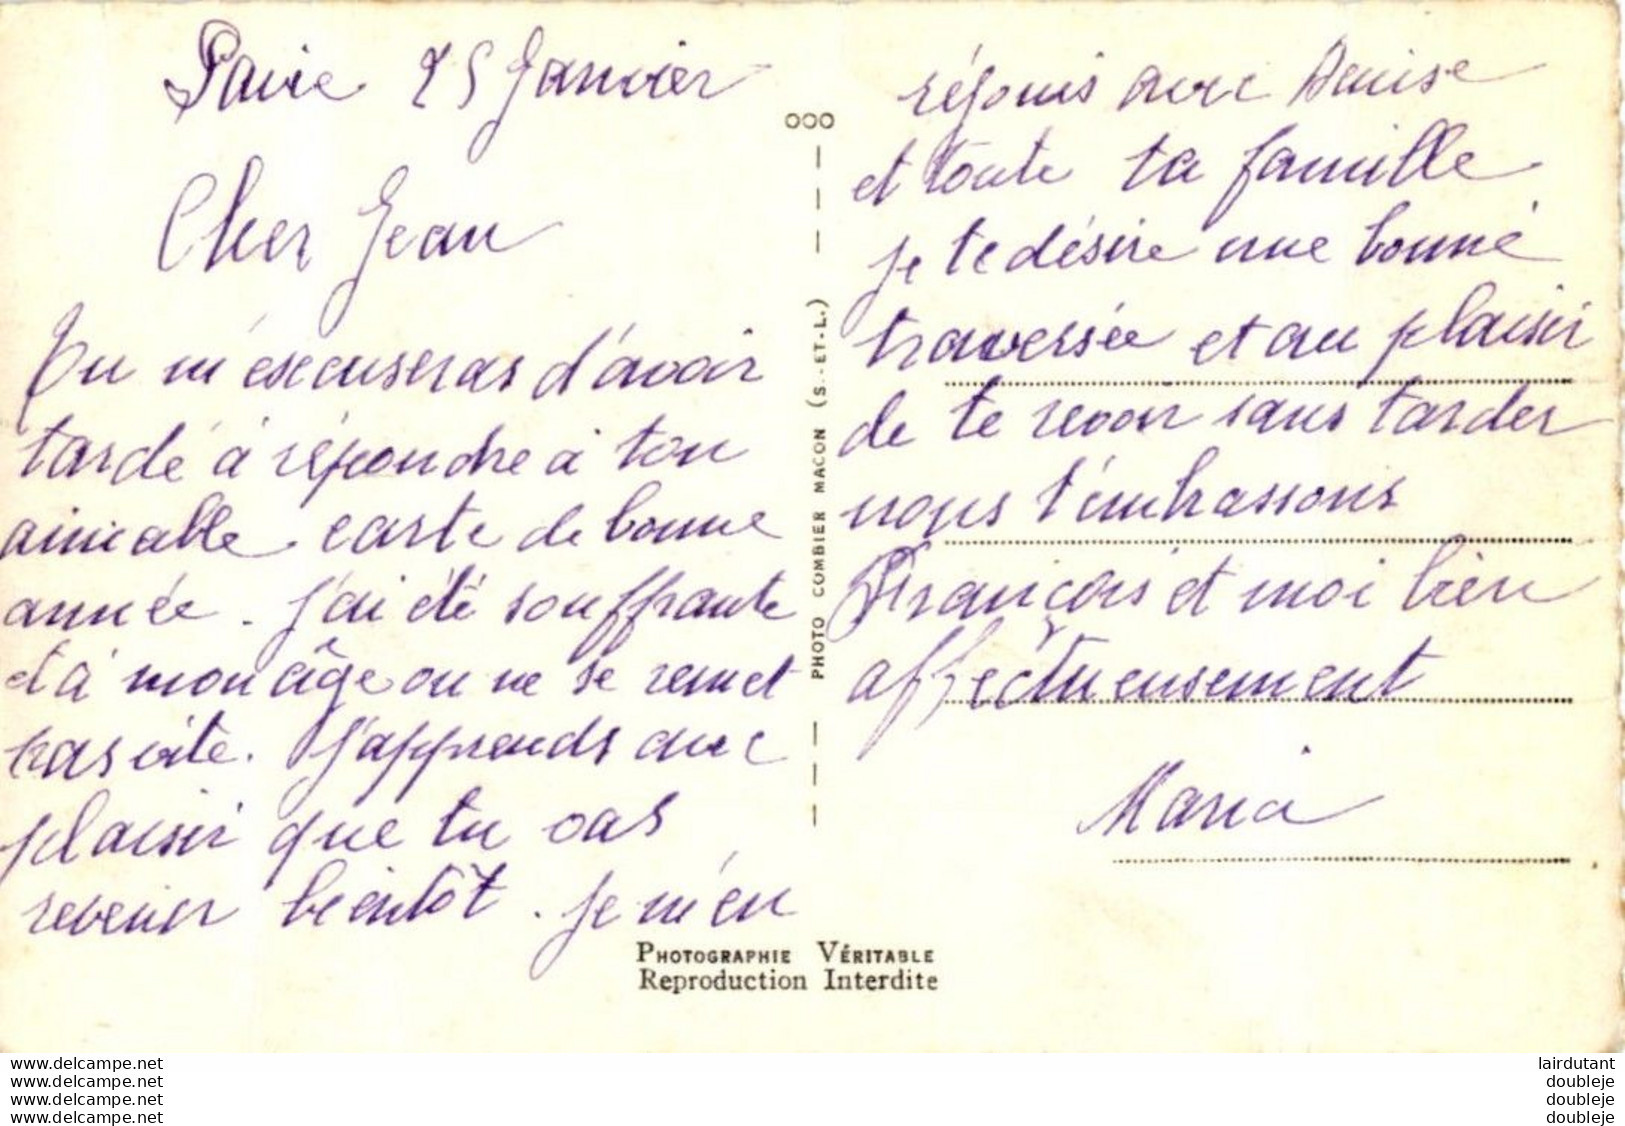 Paixe 25 Janvier
Cher Jean
Tu m'escuseras d'avoir
tardé à répondre à ton
aimable carte de bonne
année. J'ai été souffrante
et à mon âge on ne se remet
pas vite. J'apprends avec
plaisir que tu vas
revenir bientôt. Je m'en
réjouis avec Denise
et toute ta famille
je te désire une bonne
traversée et au plaisir
de te revoir sans tarder
nous t'embrassons
François et moi bien
affectueusement
Maria
PHOTO COMBIER MACON (S.-ET-L.)
PHOTOGRAPHIE VÉRITABLE
Reproduction Interdite
www.delcampe.net
www.delcampe.net
www.delcampe.net
www.delcampe.net
lairdutant
doubleje
doubleje
doubleje